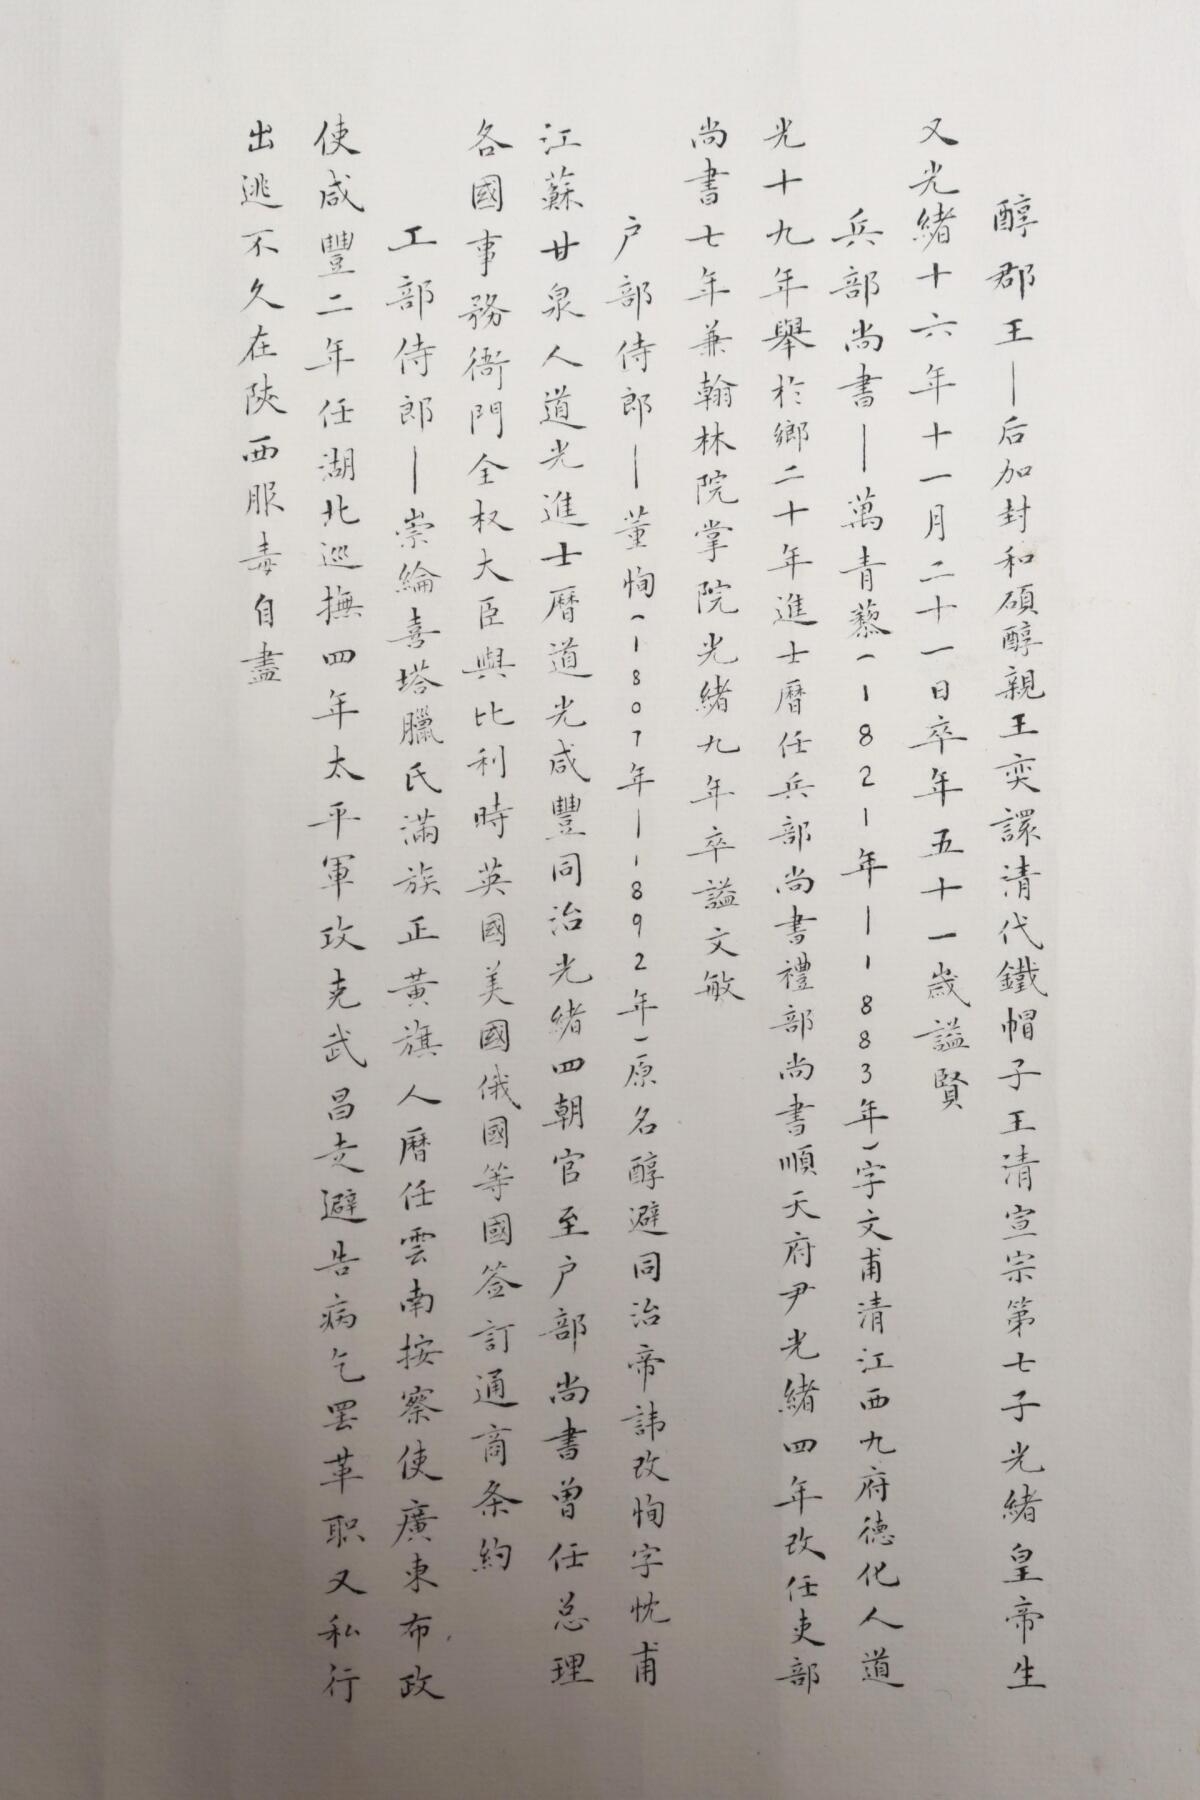 醇郡王—后加封和碩醇親王奕譞清代鐵帽子王清宣宗第七子光緒皇帝生
父光緒十六年十一月二十一日卒年五十一歲謚賢
兵部尚書—萬青藜(1821年—1883年)字文甫清江西九府德化人道
光十九年舉於鄉二十年進士曆任兵部尚書禮部尚書順天府尹光緒四年改任吏部
尚書七年兼翰林院掌院光緒九年卒謚文敏
户部侍郎—董恂(1807年—1892年)原名醇避同治帝諱改恂字忱甫
江蘇甘泉人道光進士曆道光咸豐同治光緒四朝官至户部尚書曾任总理
各國事務衙門全权大臣與比利時英國美國俄國等國签訂通商条約
工部侍郎—崇綸喜塔臘氏滿族正黃旗人曆任雲南按察使廣東布政
使咸豐二年任湖北巡撫四年太平軍攻克武昌走避告病乞罢革职又私行
出逃不久在陝西服毒自盡